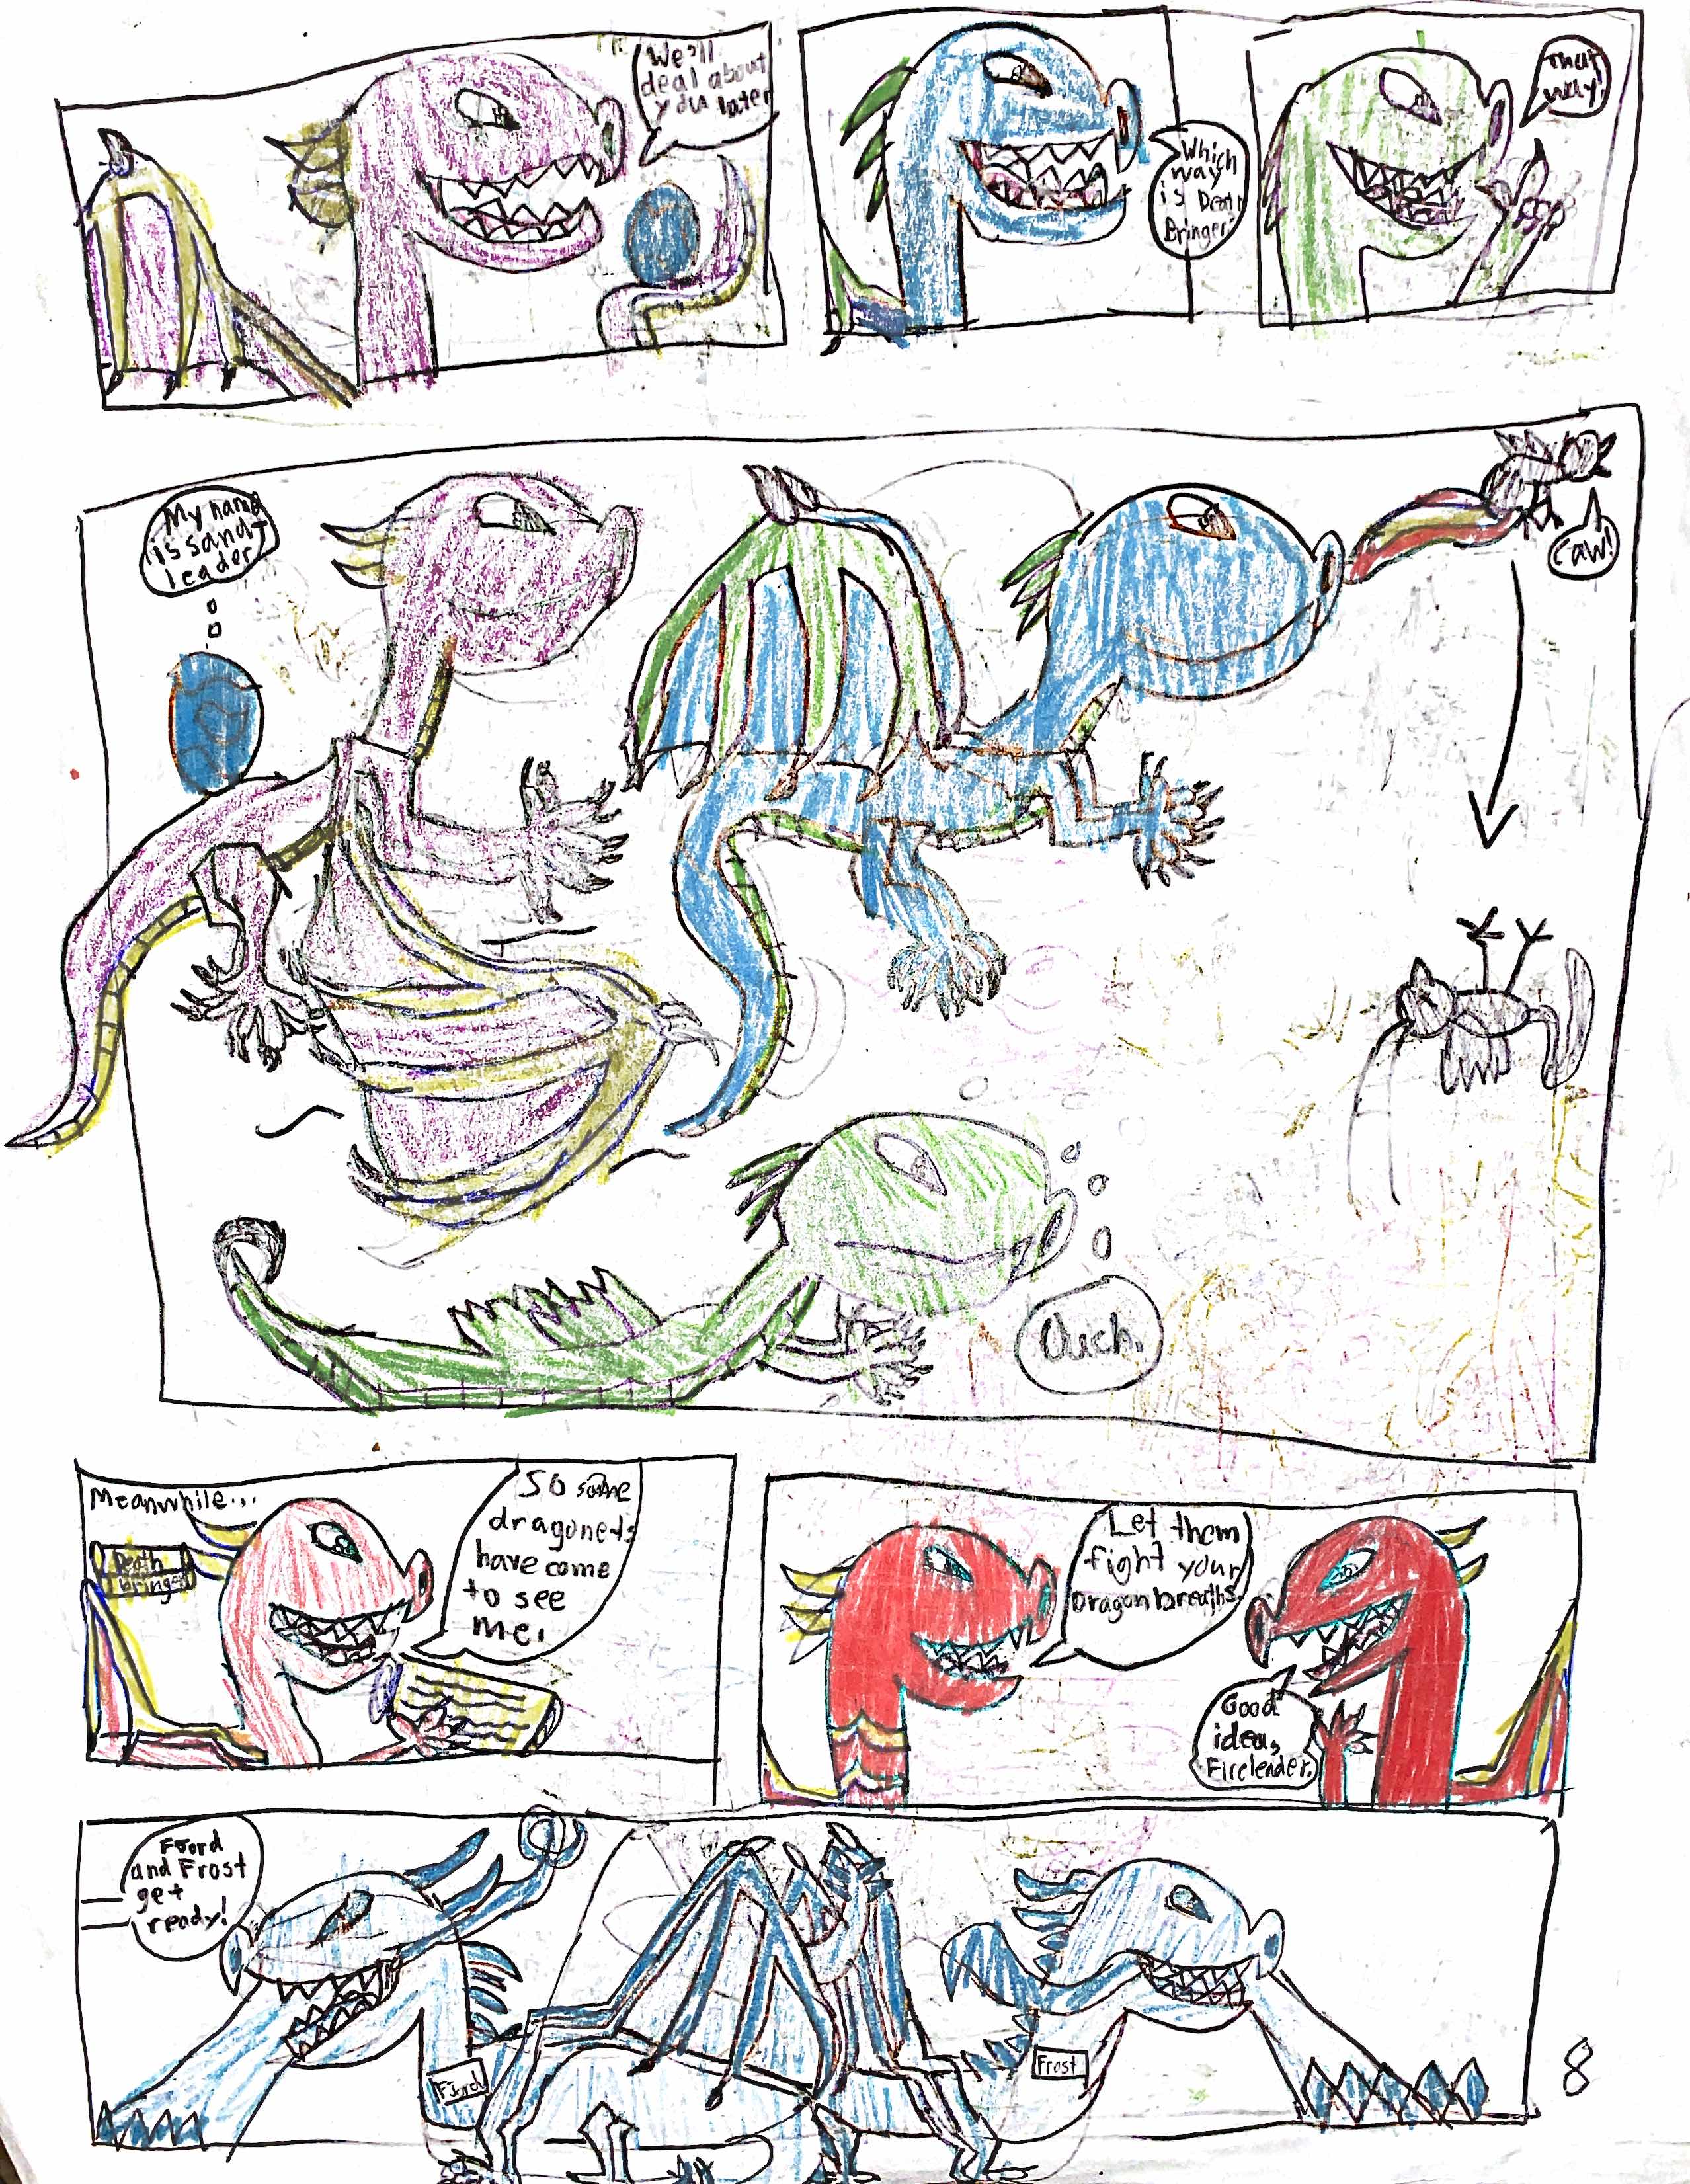 We'll
deal about
you later
Which
way
is Death
Bringer?
That
way.
My name
is sand
leader
Caw!
Ouch.
Meanwhile...
Death
bringer
So some
dragonets
have come
to see
me.
Let them
fight your
Dragonbreaths.
Good
idea,
Fireleader.
Fjord
and Frost
get
ready!
Fjord
Frost
8